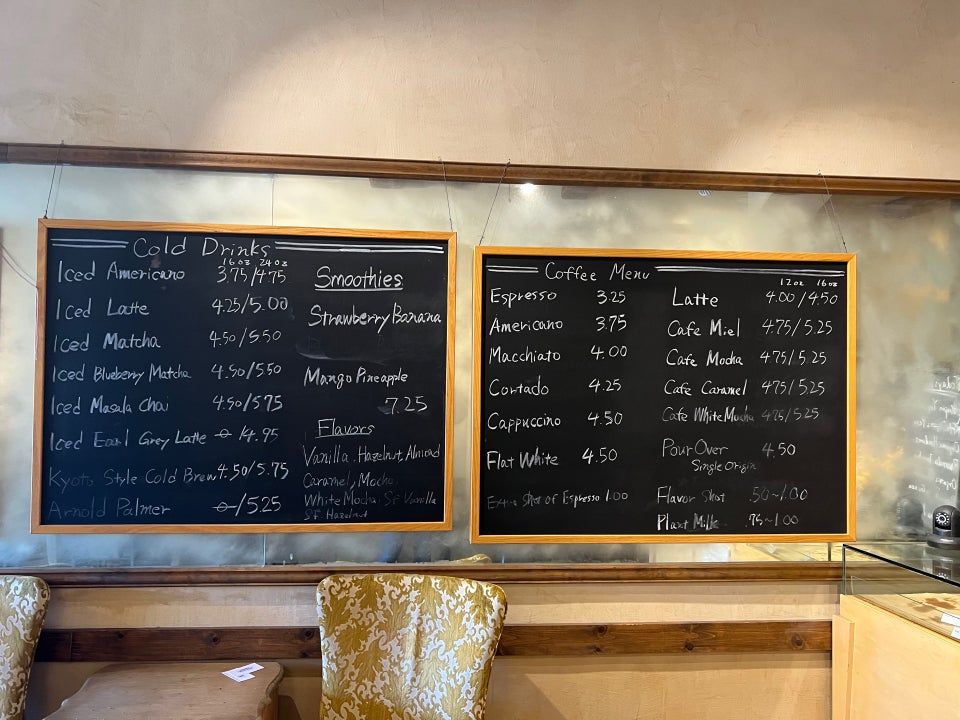 Cold Drinks
16oz 24oz
Iced Americano 3.75/4.75
Iced Latte 4.25/5.00
Iced Matcha 4.50/5.50
Iced Blueberry Matcha 4.50/5.50
Iced Masala Chai 4.50/5.75
Iced Earl Grey Latte -o-/4.95
Kyoto Style Cold Brew 4.50/5.75
Arnold Palmer -o-/5.25
Smoothies
Strawberry Banana
Mango Pineapple
7.25
Flavors
Vanilla, Hazelnut, Almond
Caramel, Mocha,
White Mocha, S.F. Vanilla
S.F. Hazelnut
Coffee Menu
Espresso 3.25
Americano 3.75
Macchiato 4.00
Cortado 4.25
Cappuccino 4.50
Flat White 4.50
Extra Shot of Espresso 1.00
12oz 16oz
Latte 4.00/4.50
Cafe Miel 4.75/5.25
Cafe Mocha 4.75/5.25
Cafe Caramel 4.75/5.25
Cafe White Mocha 4.75/5.25
Pour Over 4.50
Single Origin
Flavor Shot .50~1.00
Plant Milk .75~1.00